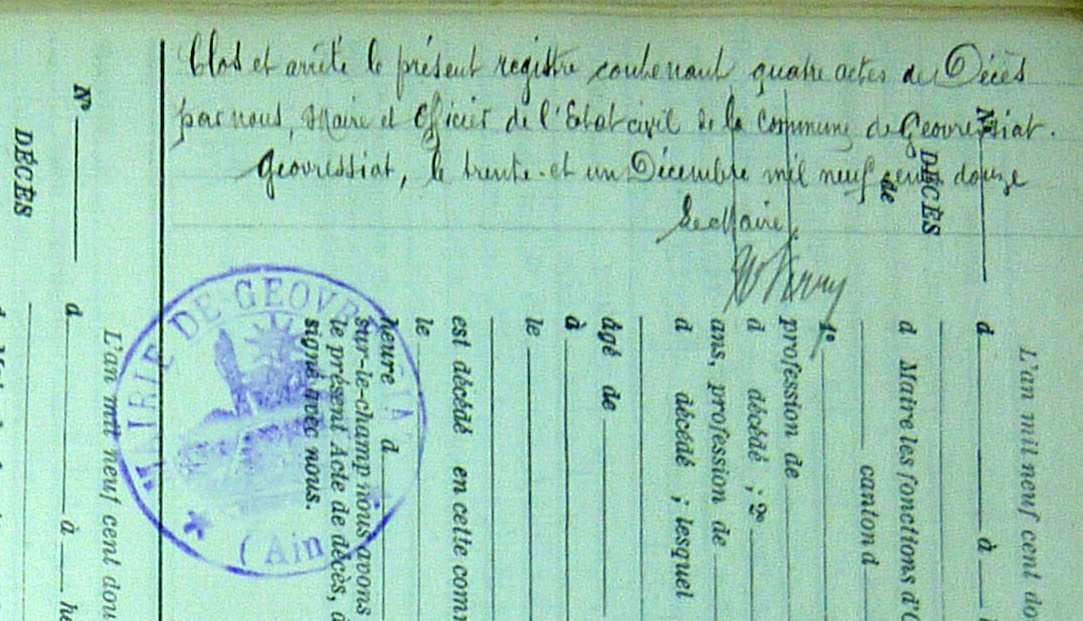 Clos et arrêté le présent registre contenant quatre actes de Décès
par nous, Maire et Officier de l'Etat civil de la Commune de Geovressiat.
Geovressiat, le trente-et un Décembre mil neuf cent douze
Le Maire,
MAIRIE DE GEOVR
(Ain
N°
DÉCÈS
de
L'an mil neuf cent do
d
à
d Maire les fonctions d'O
canton d
1°
profession de
d décédé ; 2°
ans, profession de
d décédé ; lesquel
âgé de
à
le
est décédé en cette com
le
heure d
sur-le-champ nous avons
le présent Acte de décès, 
signé avec nous.
N°
DÉCÈS
L'an mil neuf cent dou
d
à
he